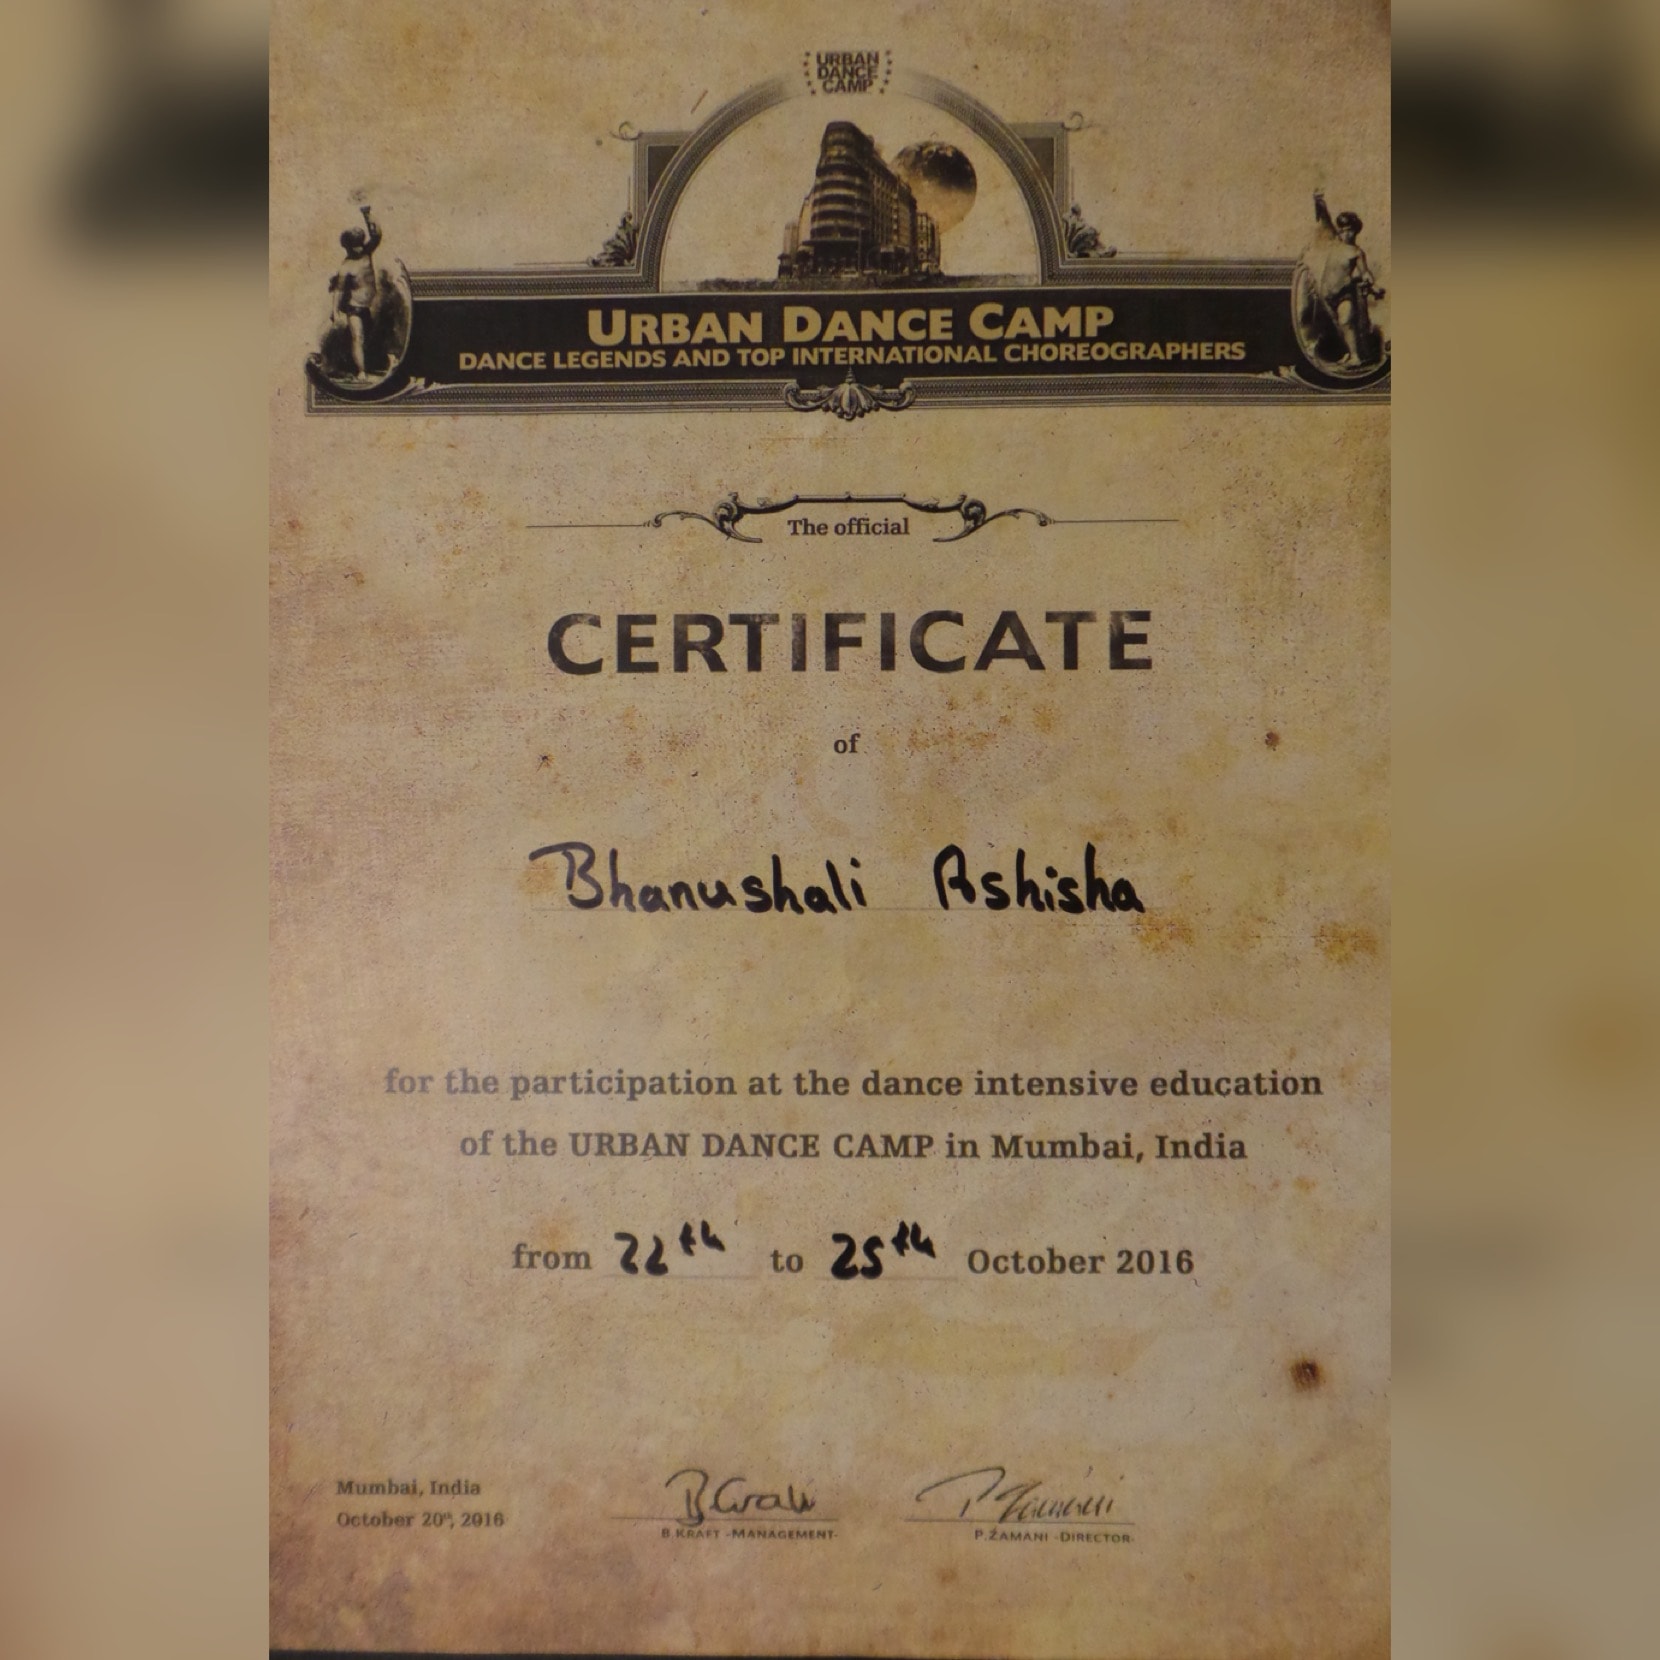 URBAN
DANCE
CAMP
URBAN DANCE CAMP
DANCE LEGENDS AND TOP INTERNATIONAL CHOREOGRAPHERS
The official
CERTIFICATE
of
Bhanushali Ashisha
for the participation at the dance intensive education
of the URBAN DANCE CAMP in Mumbai, India
from 22th to 25th October 2016
Mumbai, India
October 20th, 2016
B.KRAFT -MANAGEMENT-
P.ZAMANI -DIRECTOR-